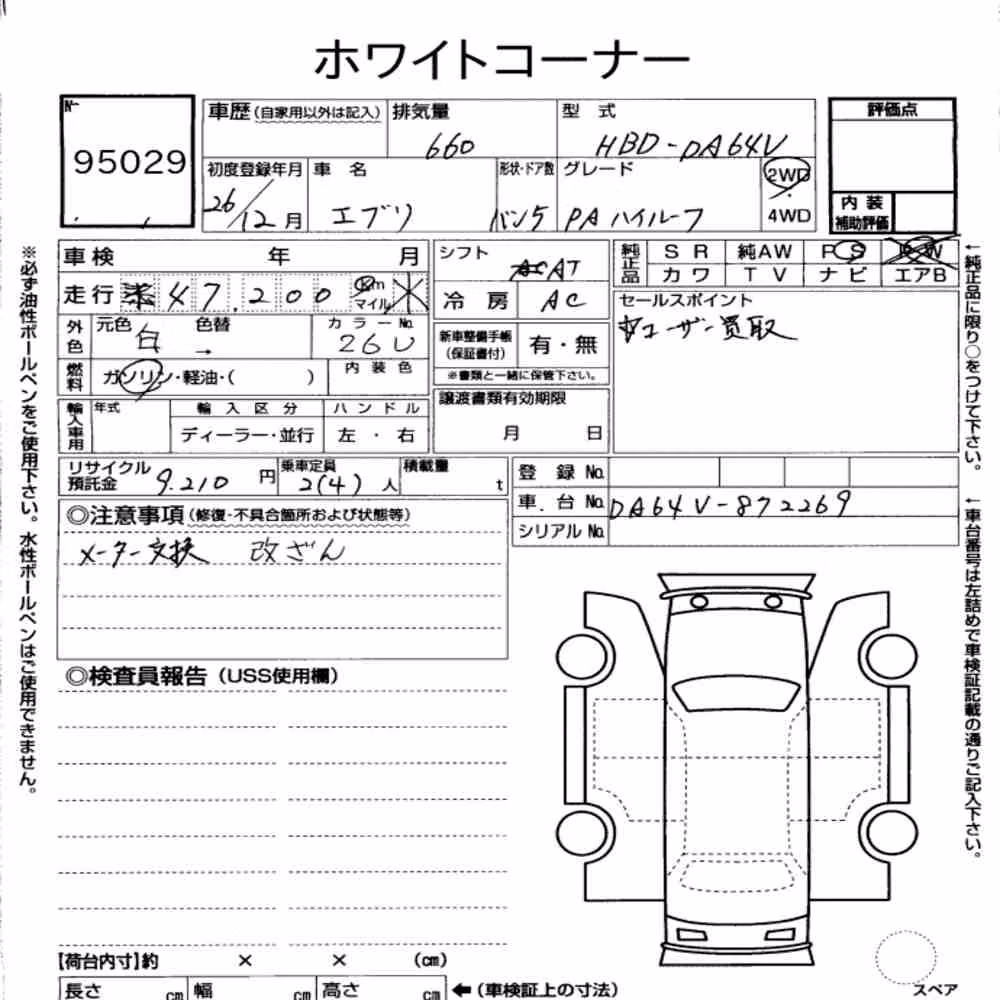 ホワイトコーナー
№
95029
車歴(自家用以外は記入)
排気量
660
型 式
HBD-DA64V
評価点
初度登録年月
26/12月
車 名
エブリ
形状・ドア数
バン5
グレード
PAハイルーフ
2WD
4WD
内 装
補助評価
車 検 年 月
シフト
AT
純正品
S R 純AW P S P W
カ ワ T V ナ ビ エアB
走 行 47,200 km マイル
冷 房 AC
セールスポイント
ユーザー買取
外色
元色 白
色替 →
カラーNo. 26U
新車整備手帳
(保証書付)
有・無
※書類と一緒に保管下さい。
燃料
ガソリン・軽油・( )
内 装 色
輸入車用
年式
輸 入 区 分
ディーラー・並行
ハ ン ド ル
左 ・ 右
譲渡書類有効期限
月 日
リサイクル
預託金
9.210 円
乗車定員
2(4)人
積載量
t
登 録 No.
車 台 No. DA64V-872269
シリアル No.
◎注意事項(修復・不具合箇所および状態等)
メーター交換 改ざん
◎検査員報告(USS使用欄)
【荷台内寸】約 × × (cm)
長さ cm 幅 cm 高さ cm ←(車検証上の寸法)
スペア
※必ず油性ボールペンをご使用下さい。水性ボールペンはご使用できません。
←純正品に限り○をつけて下さい。
←車台番号は左詰めで車検証記載の通りご記入下さい。